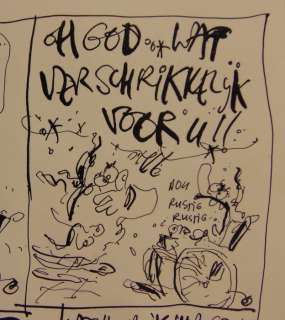 OH GOD... WAT
VERSCHRIKKELIJK
VOOR U!!
NOU
RUSTIG
RUSTIG